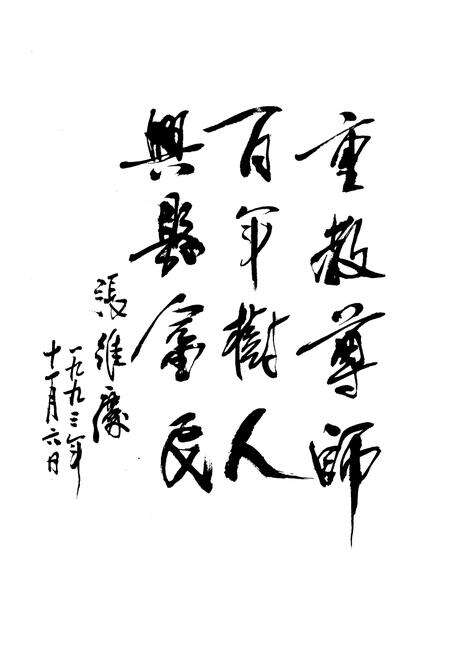 重教尊师
百年樹人
興縣富民
張維慶
一九九三年
十一月六日